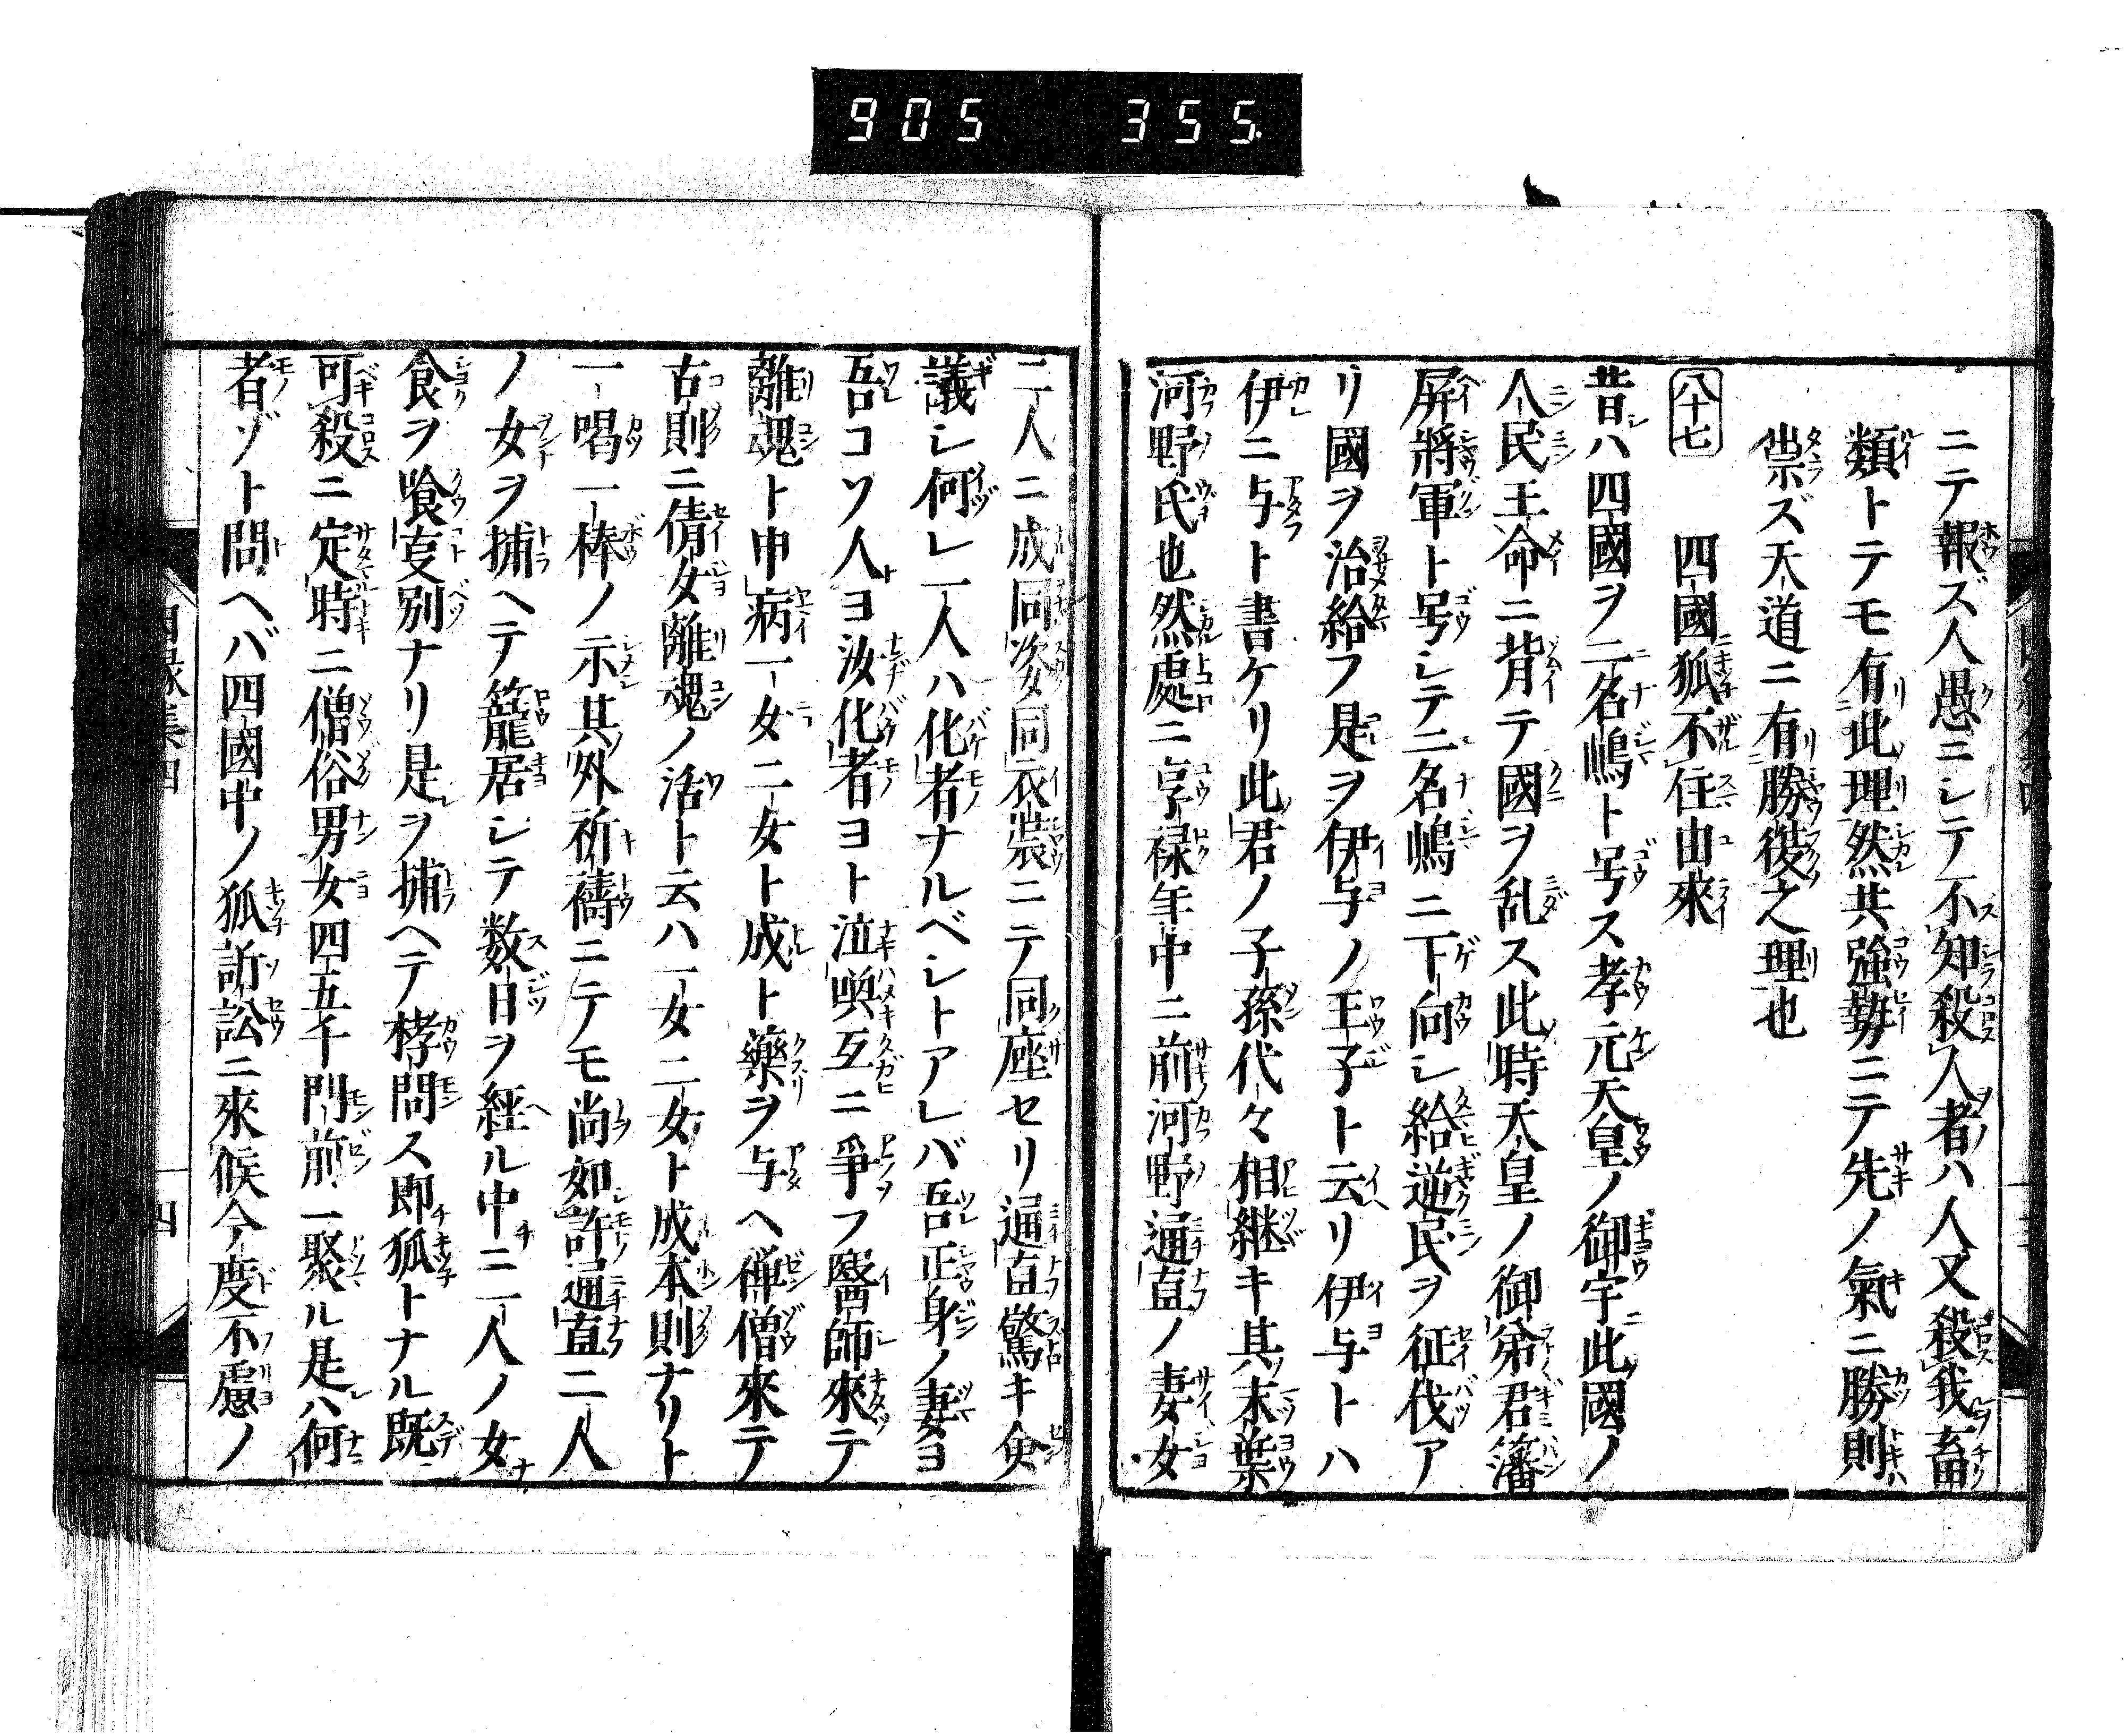 905 355.
ニテ報ズ人愚ニシテ不知殺人者ハ人又殺我畜
類トテモ有此理然共強勢ニテ先ノ氣ニ勝則
祟ズ天道ニ有勝後之理也
八十七 四國狐不住由來
昔ハ四國ヲ二名嶋ト号ス孝元天皇ノ御宇此國ノ
人民王命ニ背テ國ヲ乱ス此時天皇ノ御弟君藩
屏將軍ト号シテ二名嶋ニ下向シ給逆民ヲ征伐ア
リ國ヲ治給フ是ヲ伊与ノ王子ト云リ伊与トハ
伊ニ与ト書ケリ此君ノ子孫代々相継キ其末葉
河野氏也然處ニ享禄年中ニ前河野通直ノ妻女
二人ニ成同姿同衣裝ニテ同座セリ通直驚キ僉
議シ何レ一人ハ化者ナルベシトアレバ吾正身ノ妻ヨ
吾コソ人ヨ汝化者ヨト泣喚互ニ爭フ醫師來テ
離魂ト申病一女二女ト成ト藥ヲ与ヘ禅僧來テ
古則ニ倩女離魂ノ活ト云ハ一女二女ト成本則ナリト
一喝一棒ノ示其外祈禱ニテモ尚如許通直二人
ノ女ヲ捕ヘテ籠居シテ数日ヲ経ル中ニ一人ノ女
食ヲ喰夏別ナリ是ヲ捕ヘテ栲問ス即狐トナル既
可殺ニ定時ニ僧俗男女四五千門前ニ聚ル是ハ何
者ゾト問ヘバ四國中ノ狐訴訟ニ來候今度不慮ノ
四